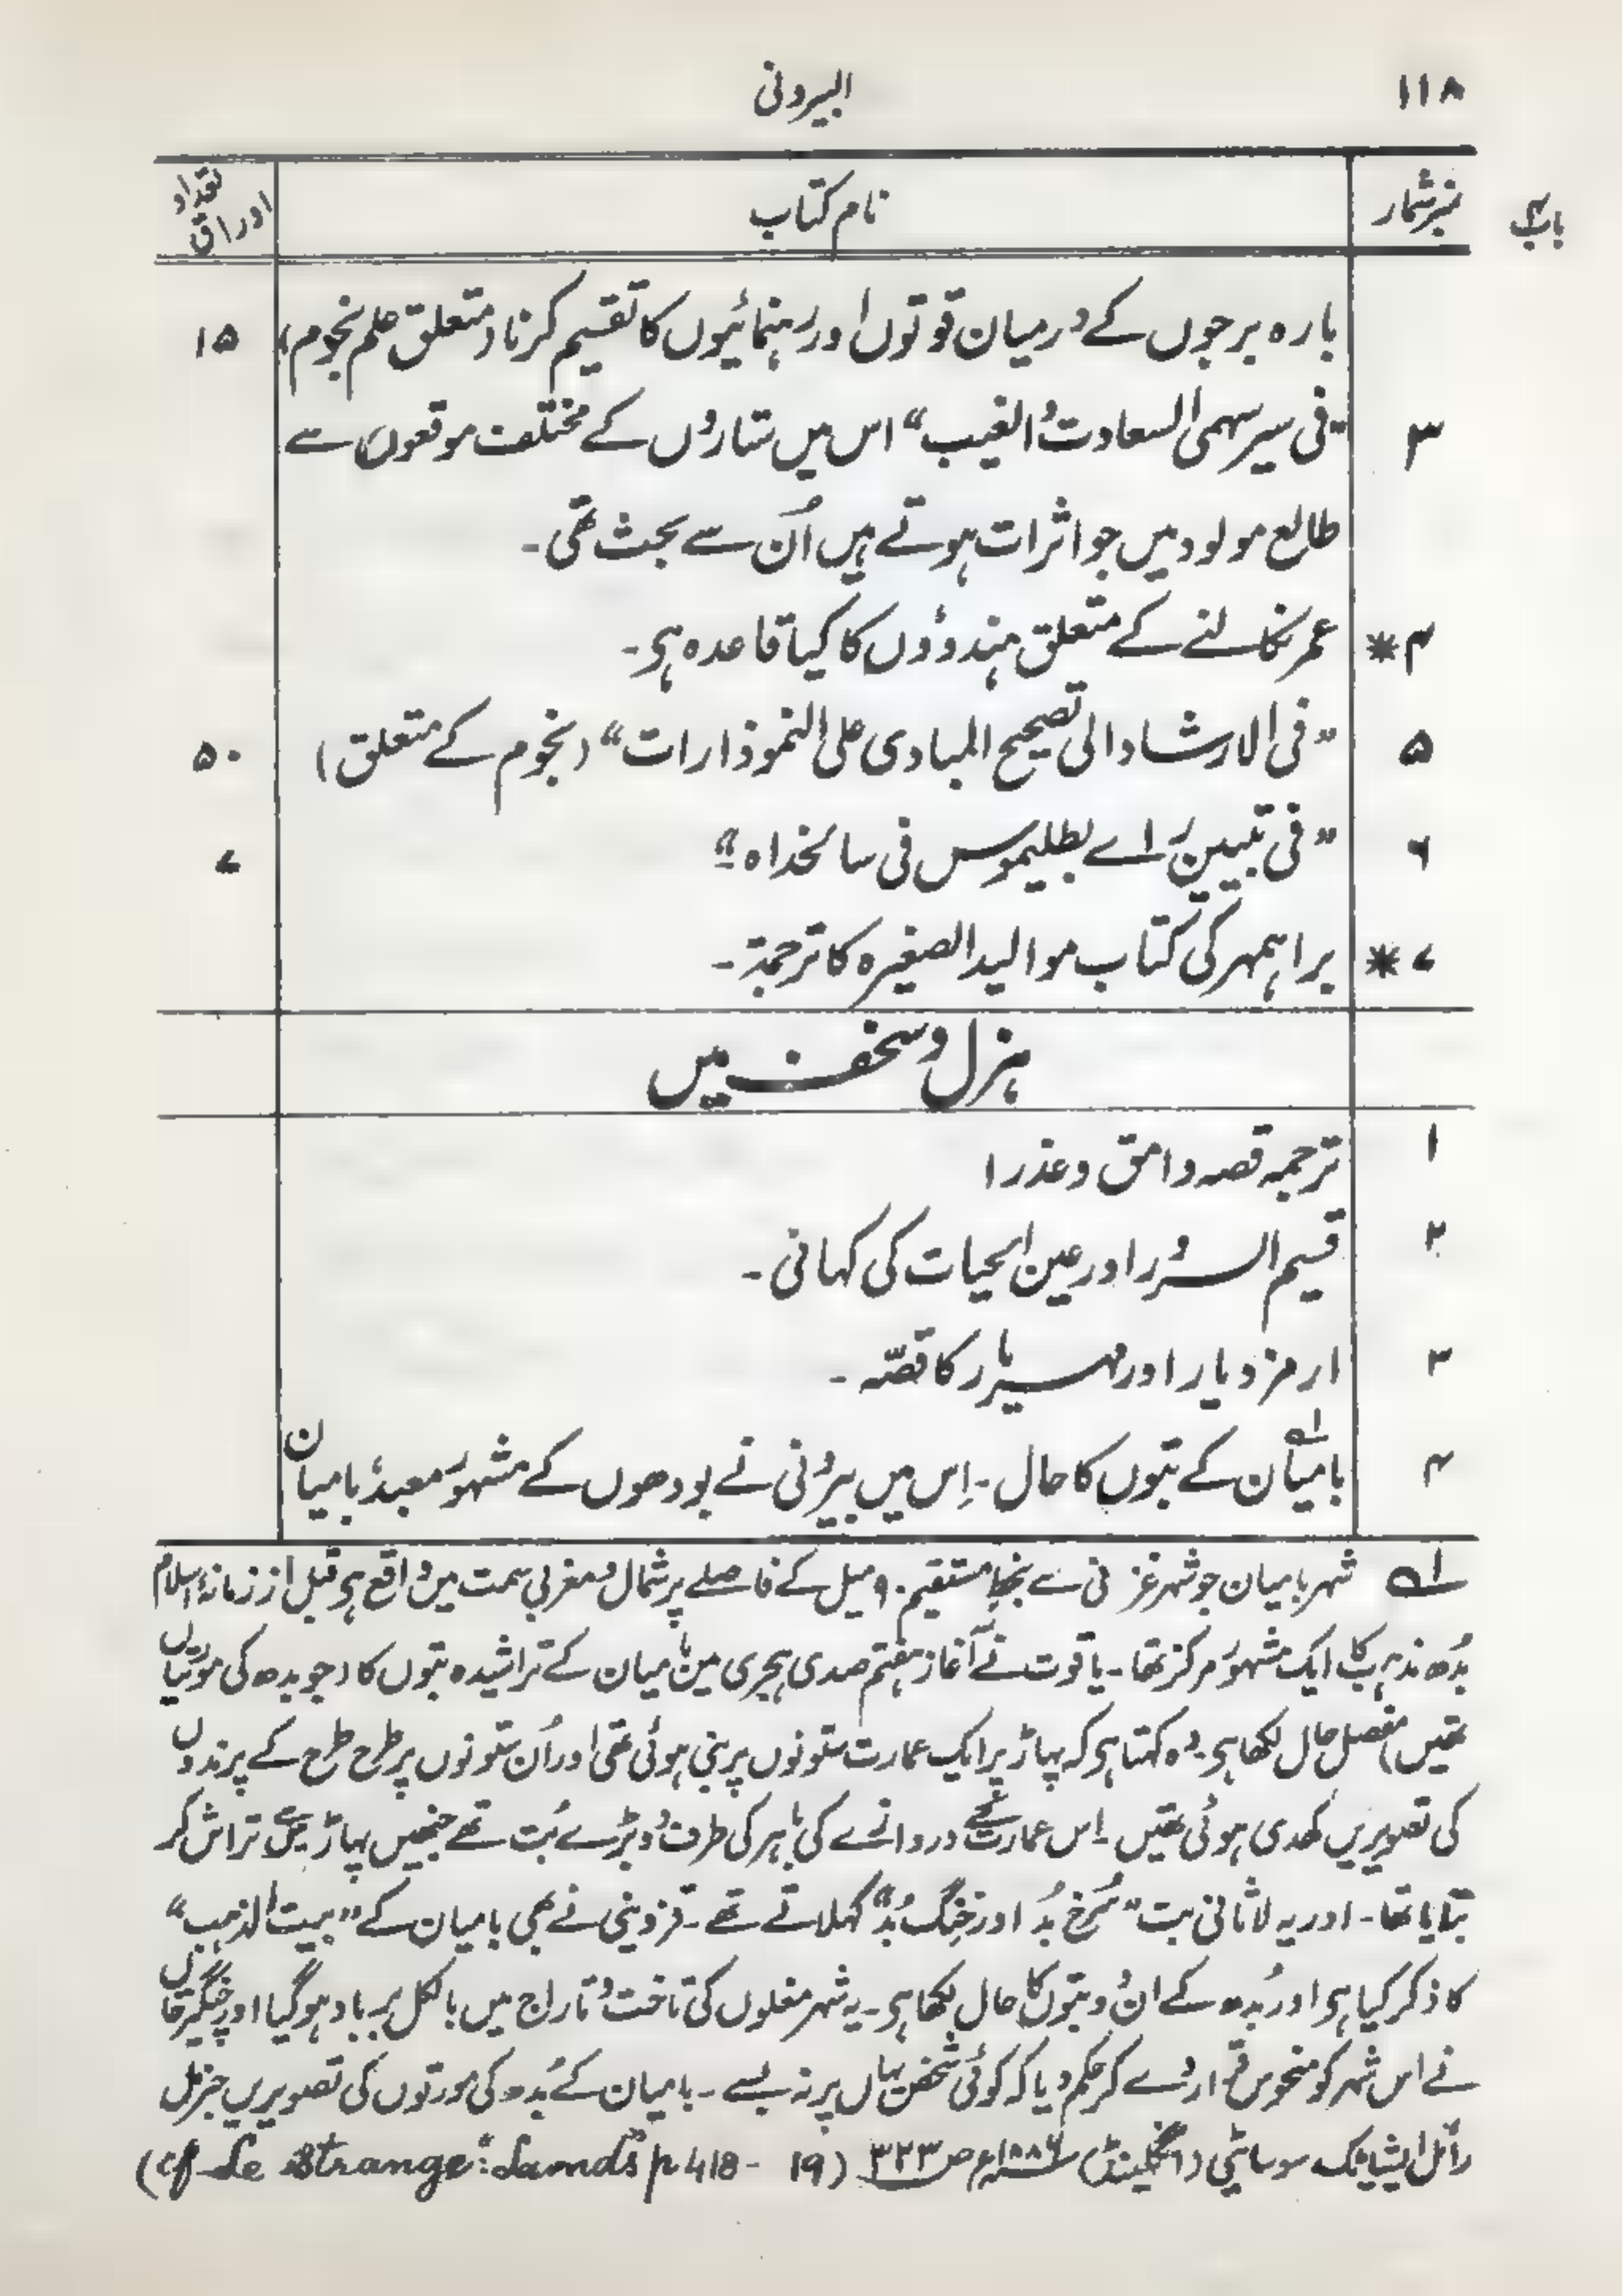 ۱۱۸ البیرونی
باب۴
نمبرشمار نام کتاب تعداد اوراق
بارہ برجوں کے درمیان قوتوں اور رہنمائیوں کا تقسیم کرنا (متعلق علم نجوم) ۱۵
۳ "فی سیر سہمی السعادت والغیب" اس میں ستاروں کے مختلف موقعوں سے
طالع مولود میں جو اثرات ہوتے ہیں اُن سے بحث تھی۔
۴* عمر نکالنے کے متعلق ہندوؤں کا کیا قاعدہ ہی۔
۵ "فی الارشاد الی تصحیح المبادی علی النموذارات" (نجوم کے متعلق) ۵۰
۶ "فی تبیین رائے بطلیموس فی سالخداہ" ۷
۷* براہمہر کی کتاب موالید الصغیرہ کا ترجمۃ۔
ہزل و سخف میں
۱ ترجمہ قصہ وامق و عذرا
۲ قسیم السرور اور عین الحیات کی کہانی۔
۳ ارمزدیار اور مہریار کا قصّہ۔
۴ بامیان۱؎ کے بتوں کا حال۔ اِس میں بیرونی نے بودھوں کے مشہور معبدۂ بامیان
۱؎ شہر بامیان جو شہر غزنی سے بخط مستقیم ۹۰ میل کے فاصلے پر شمال و مغربی سمت میں واقع ہی قبل از زمانۂ اسلام
بُدھ مذہب کا ایک مشہور مرکز تھا۔ یاقوت نے آغاز ہفتم صدی ہجری میں بامیان کے تراشیدہ بتوں کا (جو بدھ کی مورتیاں
تھیں) مفصل حال لکھا ہی۔ وہ کہتا ہی کہ پہاڑ پر ایک عمارت ستونوں پر بنی ہوئی تھی اور اُن ستونوں پر طرح طرح کے پرندوں
کی تصویریں کھدی ہوئی تھیں۔ اِس عمارت کے دروازے کی باہر کی طرف دو بڑے بُت تھے جنھیں پہاڑ میں سے تراش کر
بنایا تھا۔ اور یہ لاثانی بت "سُرخ بُد اور خِنگ بُد" کہلاتے تھے۔ قزوینی نے بھی بامیان کے "بیت الذہب"
کا ذکر کیا ہی اور بُدھ کے ان دو بتوں کا حال لکھا ہی۔ یہ شہر مغلوں کی تاخت و تاراج میں بالکل برباد ہوگیا اور چنگیز خاں
نے اس شہر کو منحوس قرار دے کر حکم دیا کہ کوئی شخص یہاں پر نہ بسے۔ بامیان کے بُدھ کی مورتوں کی تصویریں جرنل
رائل ایشیاٹک سوسائٹی (انگلینڈ) ۱۸۸۶ء ص ۳۲۳ (cf Le Strange: Lands p 418-19)